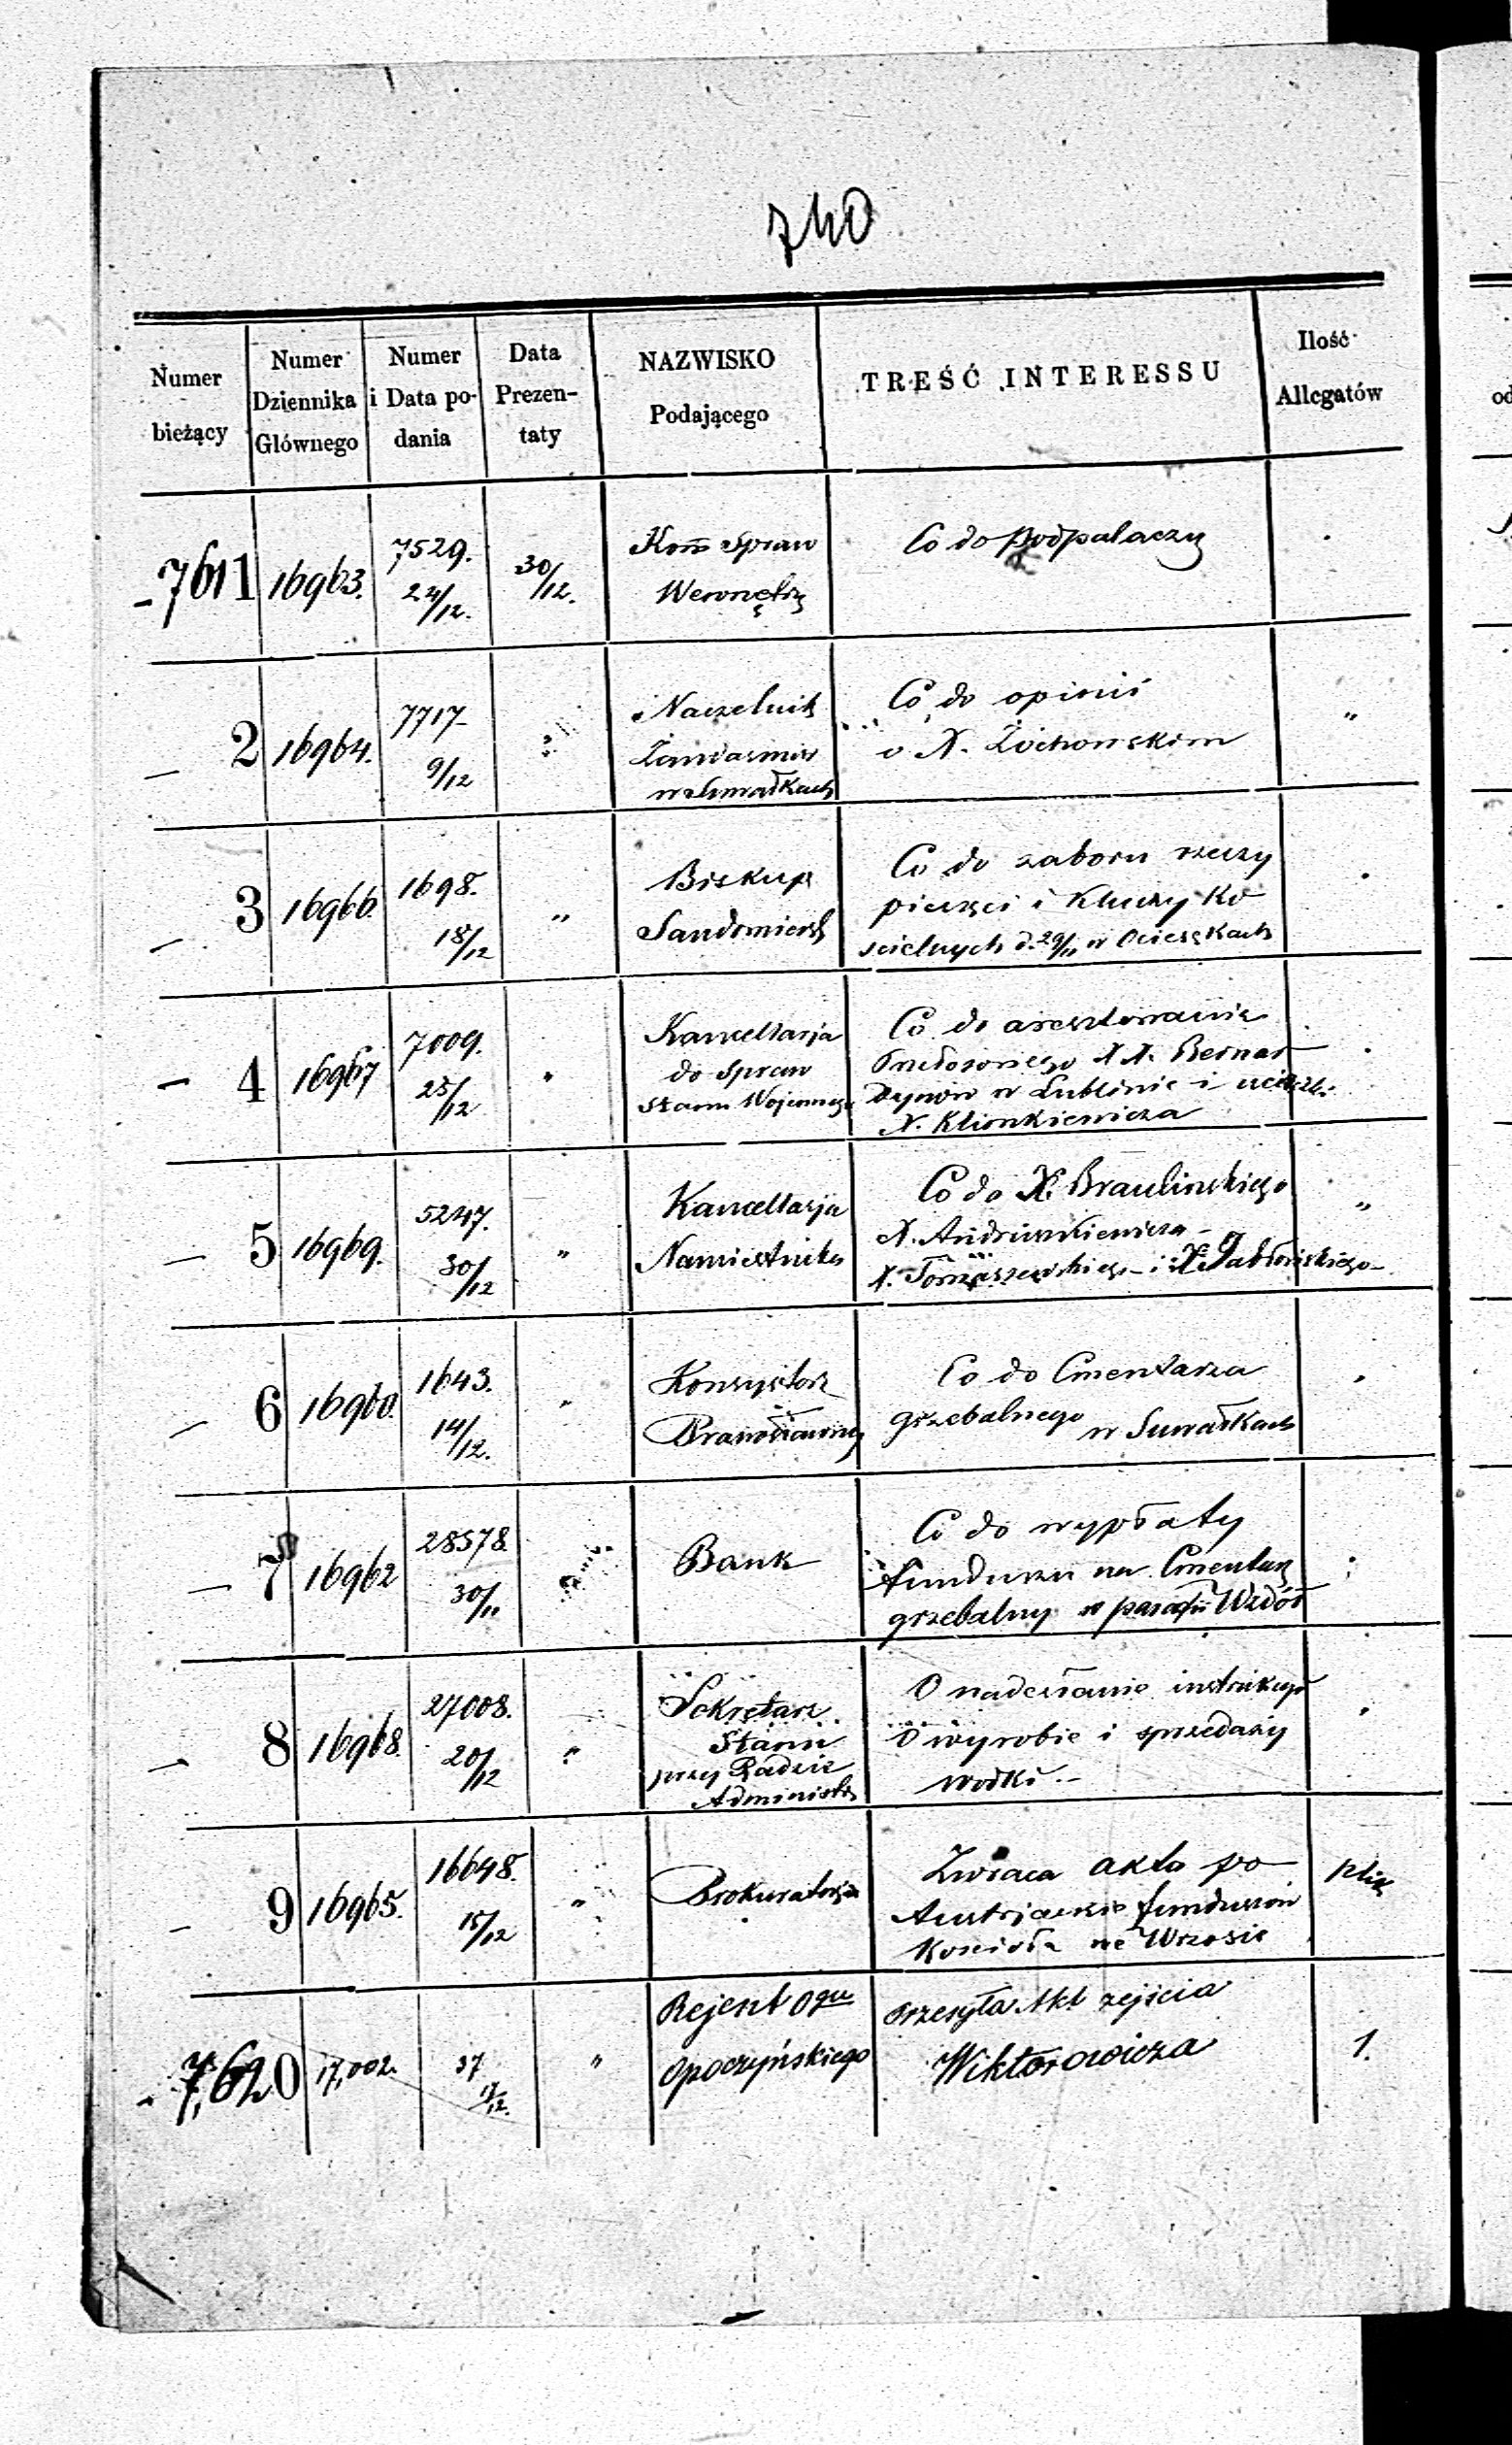 740
Numer bieżący
Numer Dziennika Głównego
Numer i Data podania
Data Prezentaty
NAZWISKO Podającego
TREŚĆ INTERESSU
Ilość Allegatów
7611 16963. 7529. 24/12. 30/12. Kom̄ Spraw Co do Podpalaczy
Wewnętrz
2 16964. 7717 9/12 " Naczelnik Co do opinii "
Żandarmów o X. Żochowskim
w Suwałkach
3 16966. 1698. 18/12 " Biskup Co do zaboru rzeczy
Sandomiersk pieczęci i Kluczy Ko
scielnych d. 29/11 w Ociesękach
4 16967 7009. 25/12 " Kancellarja Co do aresztowania
do Spraw Przełożonego XX. Bernar
Stanu Wojennego dynów w Lublinie i ucieczk:
X. Klimkiewicza
5 16969. 5247. 30/12 " Kancellarja Co do X. Braulinskiego "
Namiestnika X. Andruszkiewicza
X. Tomaszewskiego i X. Jabłońskiego
6 16960. 1643. 14/12. " Konsystorz Co do Cmentarza
Prawosławny grzebalnego w Suwałkach
7 16962 28578. 30/11 " Bank Co do wypłaty
funduszu na Cmentarz
grzebalny w parafii Wzdół
8 16968. 27008. 20/12 " Sekretarz O nadesłanie instrukcyi
Stanu o wyrobie i sprzedaży
przy Radzie wodki
Administr
9 16965. 16648. 15/12 " Prokuratorja Zwraca akta po plik
Austrjackie funduszów
Kościoła we Wrzosie
7,620 17,002. 37 " Rejent Ogu przesyła Akt zejścia 1.
Opoczyńskiego Wiktorowicza